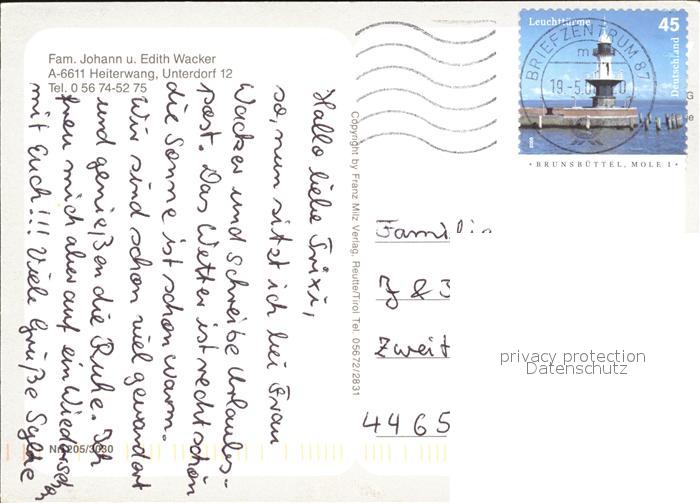 Fam. Johann u. Edith Wacker
A-6611 Heiterwang, Unterdorf 12
Tel. 0 56 74-52 75
Hallo liebe Trixi,
so, nun sitze ich bei Frau
Wacker und schreibe Urlaubs-
post. Das Wetter ist recht schön
die Sonne ist schon warm.
Wir sind schon viel gewandert
und genießen die Ruhe. Ich
freu mich aber auf ein Wiedersehen
mit Euch!!! Viele Grüße
Nr. 205/3030
Copyright by Franz Milz Verlag, Reutte/Tirol Tel. 05672/2831
Leuchttürme 45
Deutschland
BRIEFZENTRUM 87
19-5.0
BRUNSBÜTTEL, MOLE 1
Famili
J & J
Zweit
4465
privacy protection
Datenschutz